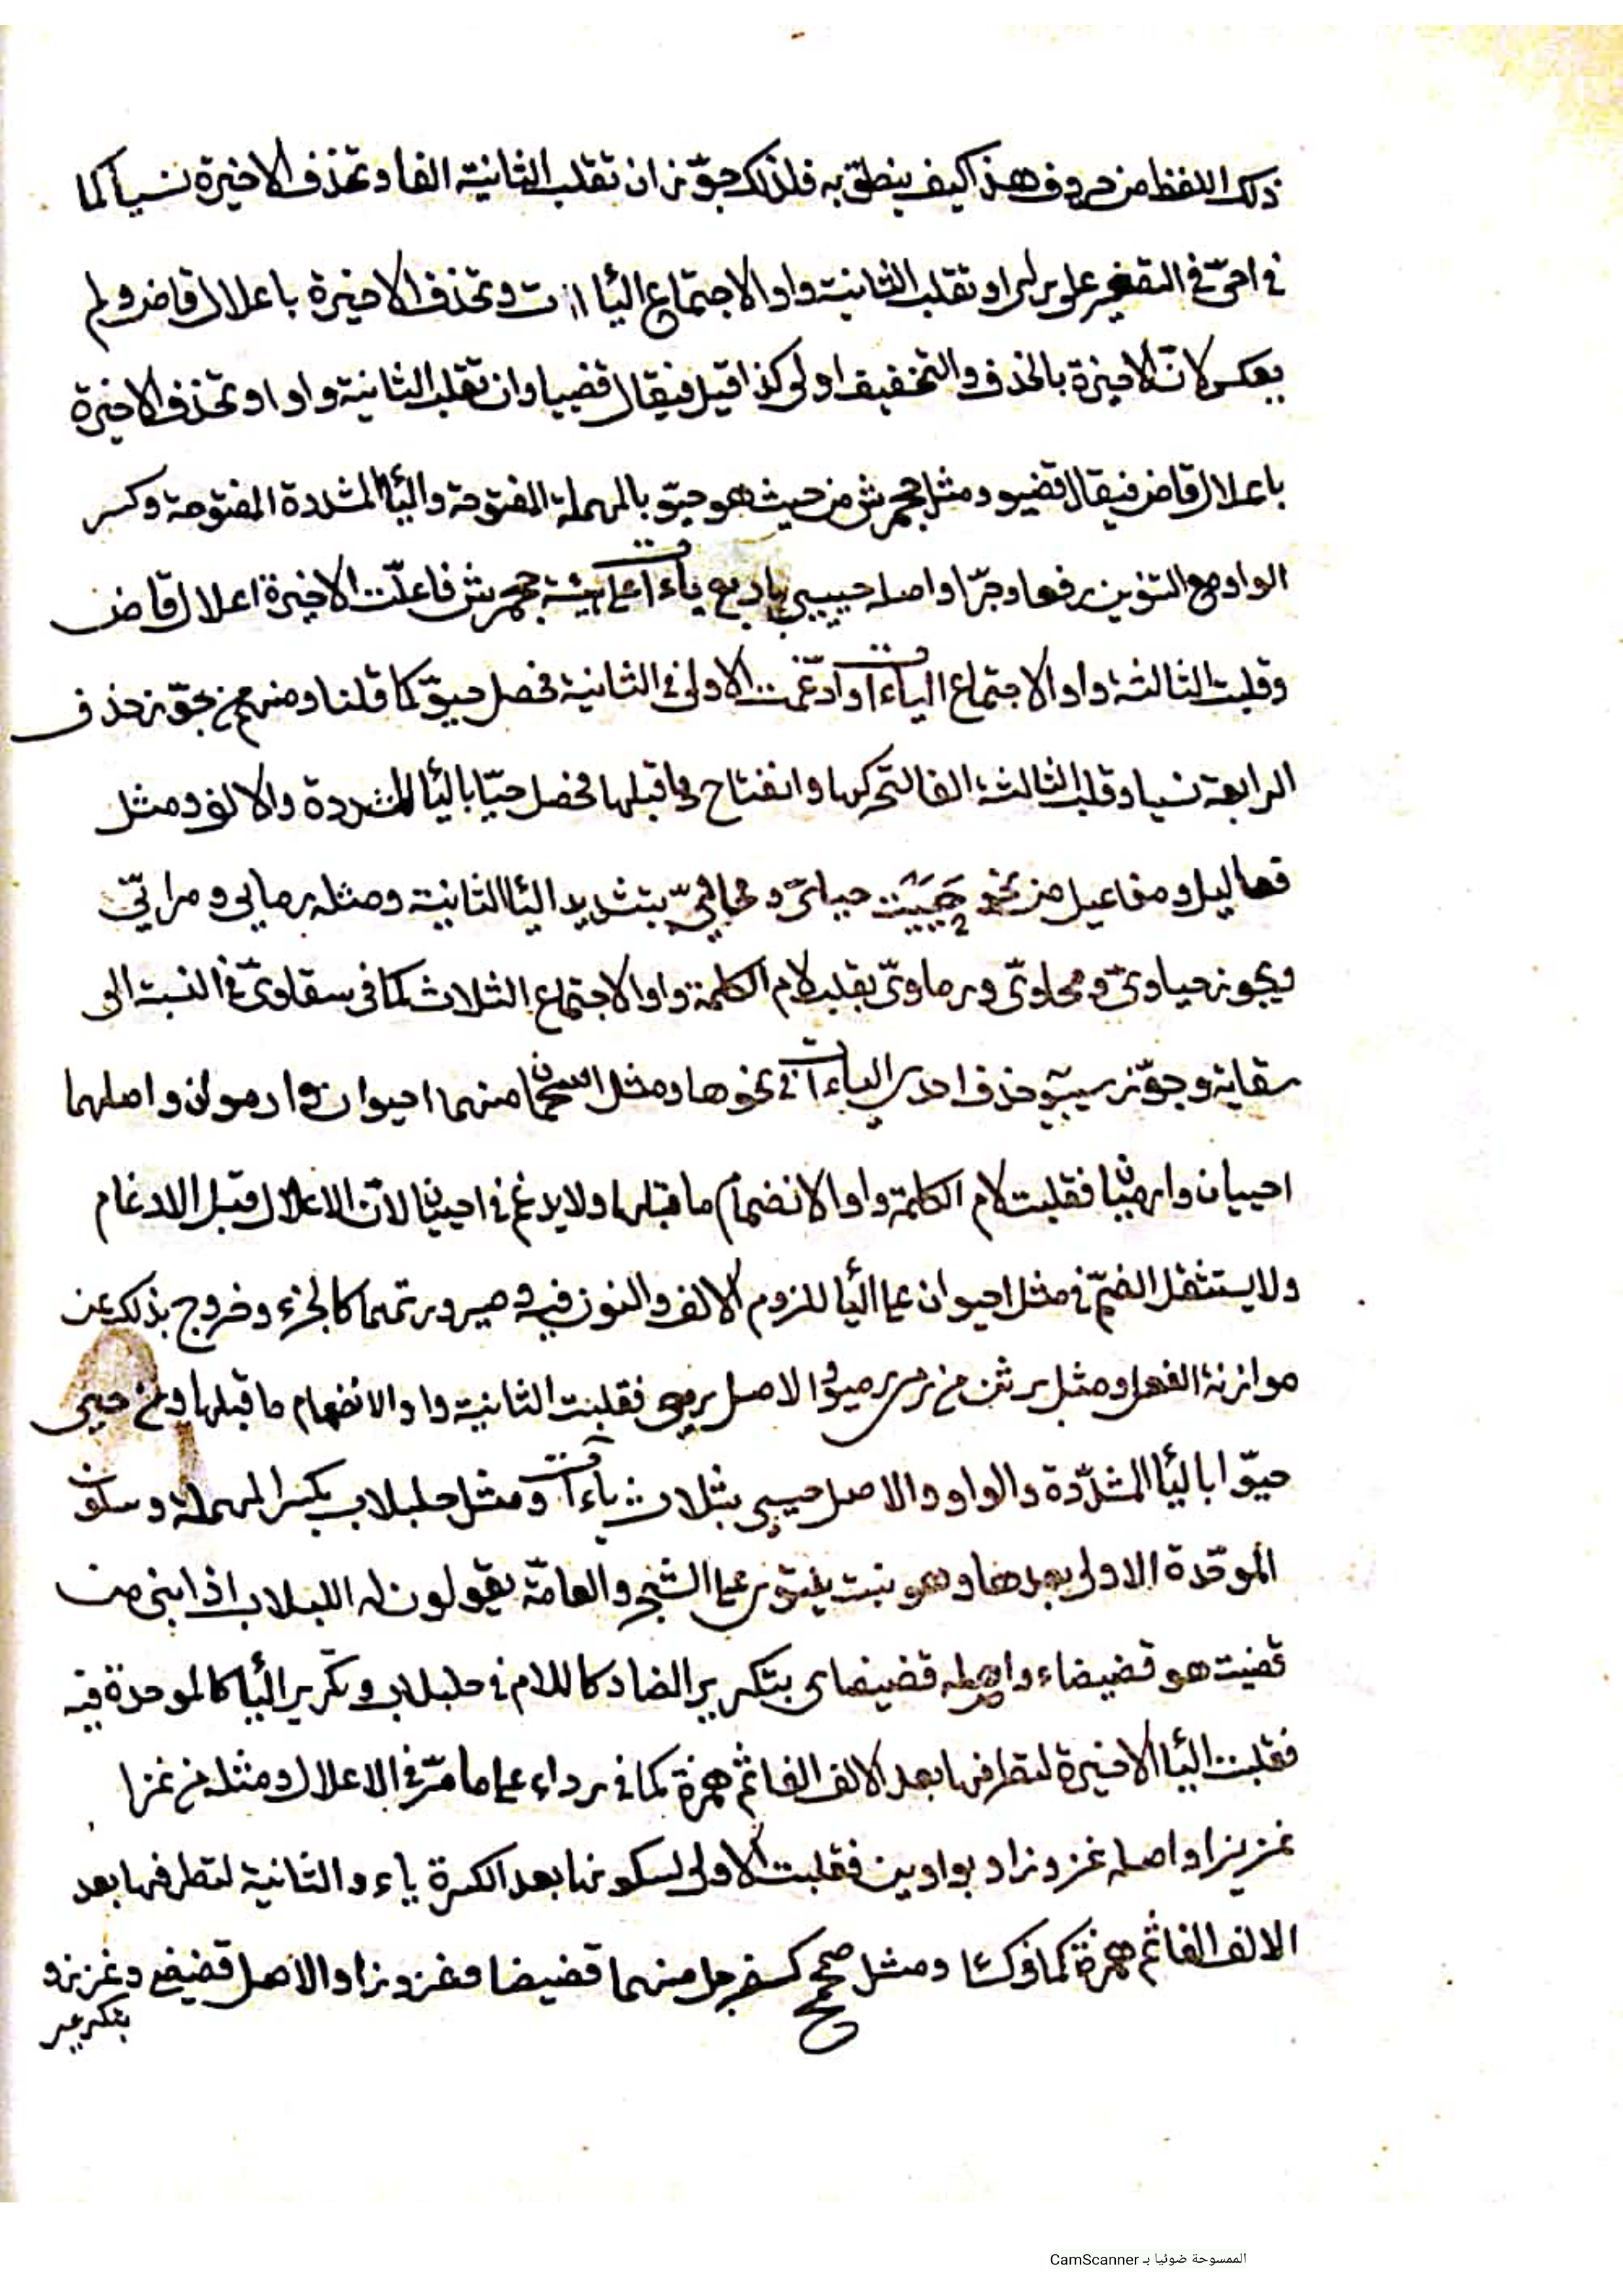 ذلك اللفظ من حروف هذا كيف ينطق به فلذلك جوّز ان تقلب الثانية الفا وتحذف الاخيرة نسياً كما
في احىّ في التصغير على براو تقلب الثانية واوا لاجتماع اليا ات وتحذف الاخيرة باعلال قاض ولم
يعكس لانّ الاخيرة بالحذف والتخفيف اولى كذا قيل فيقال قضيا وان تقلب الثانية واوا وتحذف الاخيرة
باعلال قاض فيقال قضيو ومثل جحمرش من حيث هو حيّو بالمهملة المفتوحة واليأ المشددة المفتوحة وكسر
الواو مع التنوين رفعا وجرّا واصله حييي باربع ياءات على هيئة جحمرش فاعلّت الاخيرة اعلال قاض
وقلبت الثالثة واوا لاجتماع الياءات وادغمت الاولى في الثانية فحصل حيوّ كما قلنا ومنهم من يجوّز حذف
الرابعة نسيا وقلب الثالثة الفا لتحركها وانفتاح ما قبلها فحصل حيّا باليأ المشددة والالف ومثل
فعاليل ومفاعيل من نحو حييت حيائىّ ومحائىّ بتشديد اليأ الثانية ومثله رمايى ومرايىّ
ويجوز حياوىّ ومحاوىّ ورماوىّ بقلب لام الكلمة واوا لاجتماع الثلاث كما فى سقاوىّ في النسبة الى
سقاية وجوّز سيبويه حذف احدى الياءات في نحوها ومثل اسحمان منهما احيوان وارموان واصلهما
احييان وارميان فقلبت لام الكلمة واوا لانضمام ما قبلها ولا يدغم في احييان لانّ الاعلال قبل الادغام
ولا يستثقل الضمّ في مثل احيوان على اليأ للزوم الالف والنون فيه وصيرورتهما كالجزء وخروج بذلك عن
موازنة الفعل ومثل برثن من رمى رميو والاصل رميى فقلبت الثانية واوا لانضمام ما قبلها ومن حيى
حيّوا باليأ المشدّدة والواو والاصل حييى بثلاث ياءات ومثل حلبلاب بكسر المهملة وسكون
الموحّدة الاولى بعدها وهو نبت على الشجر والعامّة يقولون له اللبلاب اذا بنى من
قضيت هو قضيضاء واصله قضيضاى بتكرير الضاد كاللام في حلبلاب وتكرير اليأ كالموحدة فيه
فقلبت اليأ الاخيرة لتطرفها بعد الالف الفا ثم همزة كما في رداء على ما مرّ في الاعلال ومثله من غزا
غزيزا واصله غزوزاو بواوين فقلبت الاولى لسكونها بعد الكسرة ياء والثانية لتطرفها بعد
الالف الفا ثم همزة كما في كسا ومثل صمحمح كسفرجل منهما قضيضا وغزوزا والاصل قضيضى وغزوزو
بتكرير
الممسوحة ضوئيا بـ CamScanner